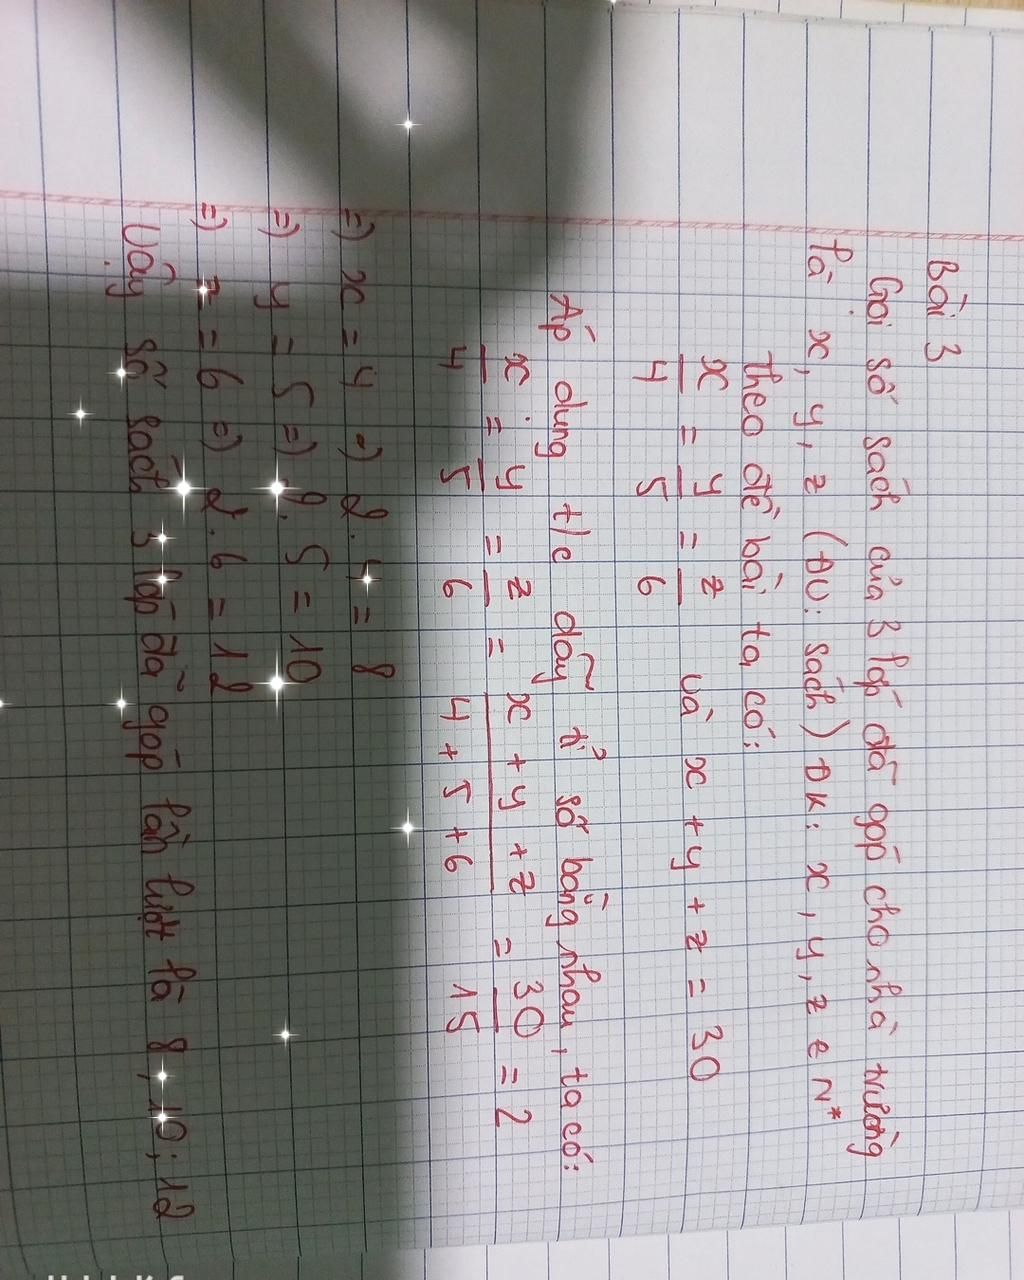 Bài 3
Gọi số sách của 3 lớp đã góp cho nhà trường
là x, y, z (ĐV: sách) ĐK: x, y, z ∈ N*
Theo đề bài ta có:
x/4 = y/5 = z/6 và x + y + z = 30
Áp dụng t/c dãy tỉ số bằng nhau, ta có:
x/4 = y/5 = z/6 = x + y + z/4 + 5 + 6 = 30/15 = 2
=) x = 4 =) 2.4 = 8
=) y = 5 =) 2.5 = 10
=) z = 6 =) 2.6 = 12
Vậy số sách 3 lớp đã góp lần lượt là 8; 10; 12